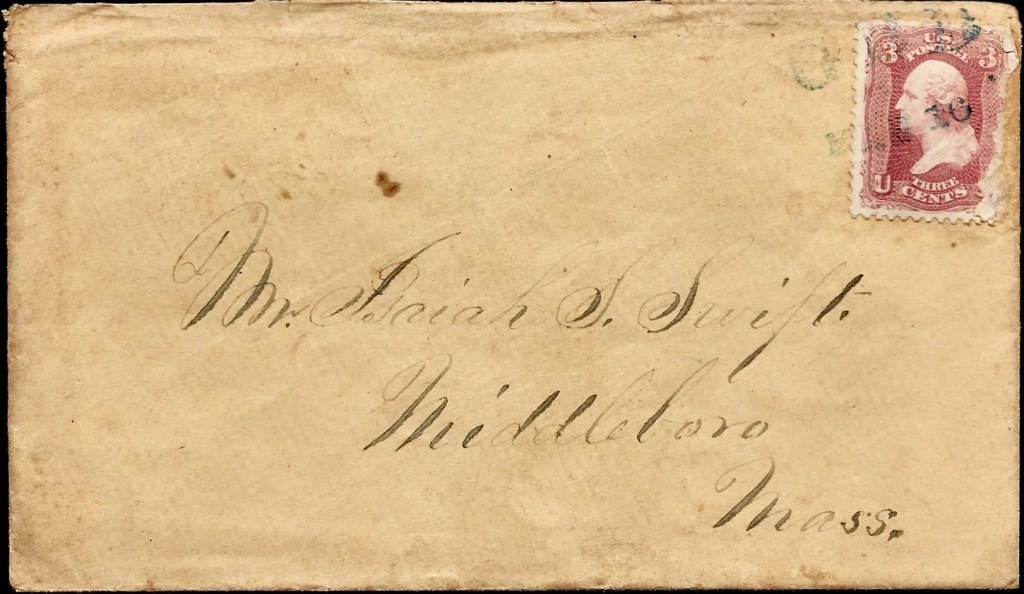 3 U.S. 3
POSTAGE
10
U
THREE
CENTS
Mr. Isaiah S. Swift.
Middleboro
Mass.